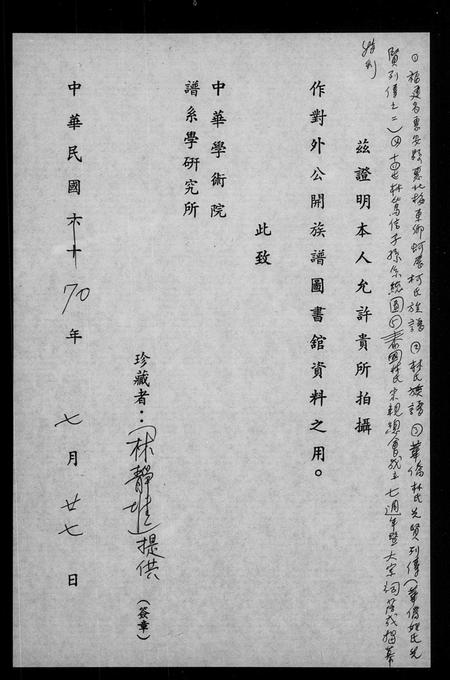 ①福建省惠安縣惠北梅東鄉蚵厝柯氏族譜②林氏族譜③華僑林氏先賢列傳(華僑姓氏先
賢列傳之二)④十四世林萬信子孫系統圖⑤泰國林氏宗親總會成立七週年暨大宗祠落成揭幕
特刊
茲證明本人允許貴所拍攝
作對外公開族譜圖書館資料之用。
此致
中華學術院
譜系學研究所
珍藏者：林靜 提供(簽章)
中華民國 70年 七月 廿七日